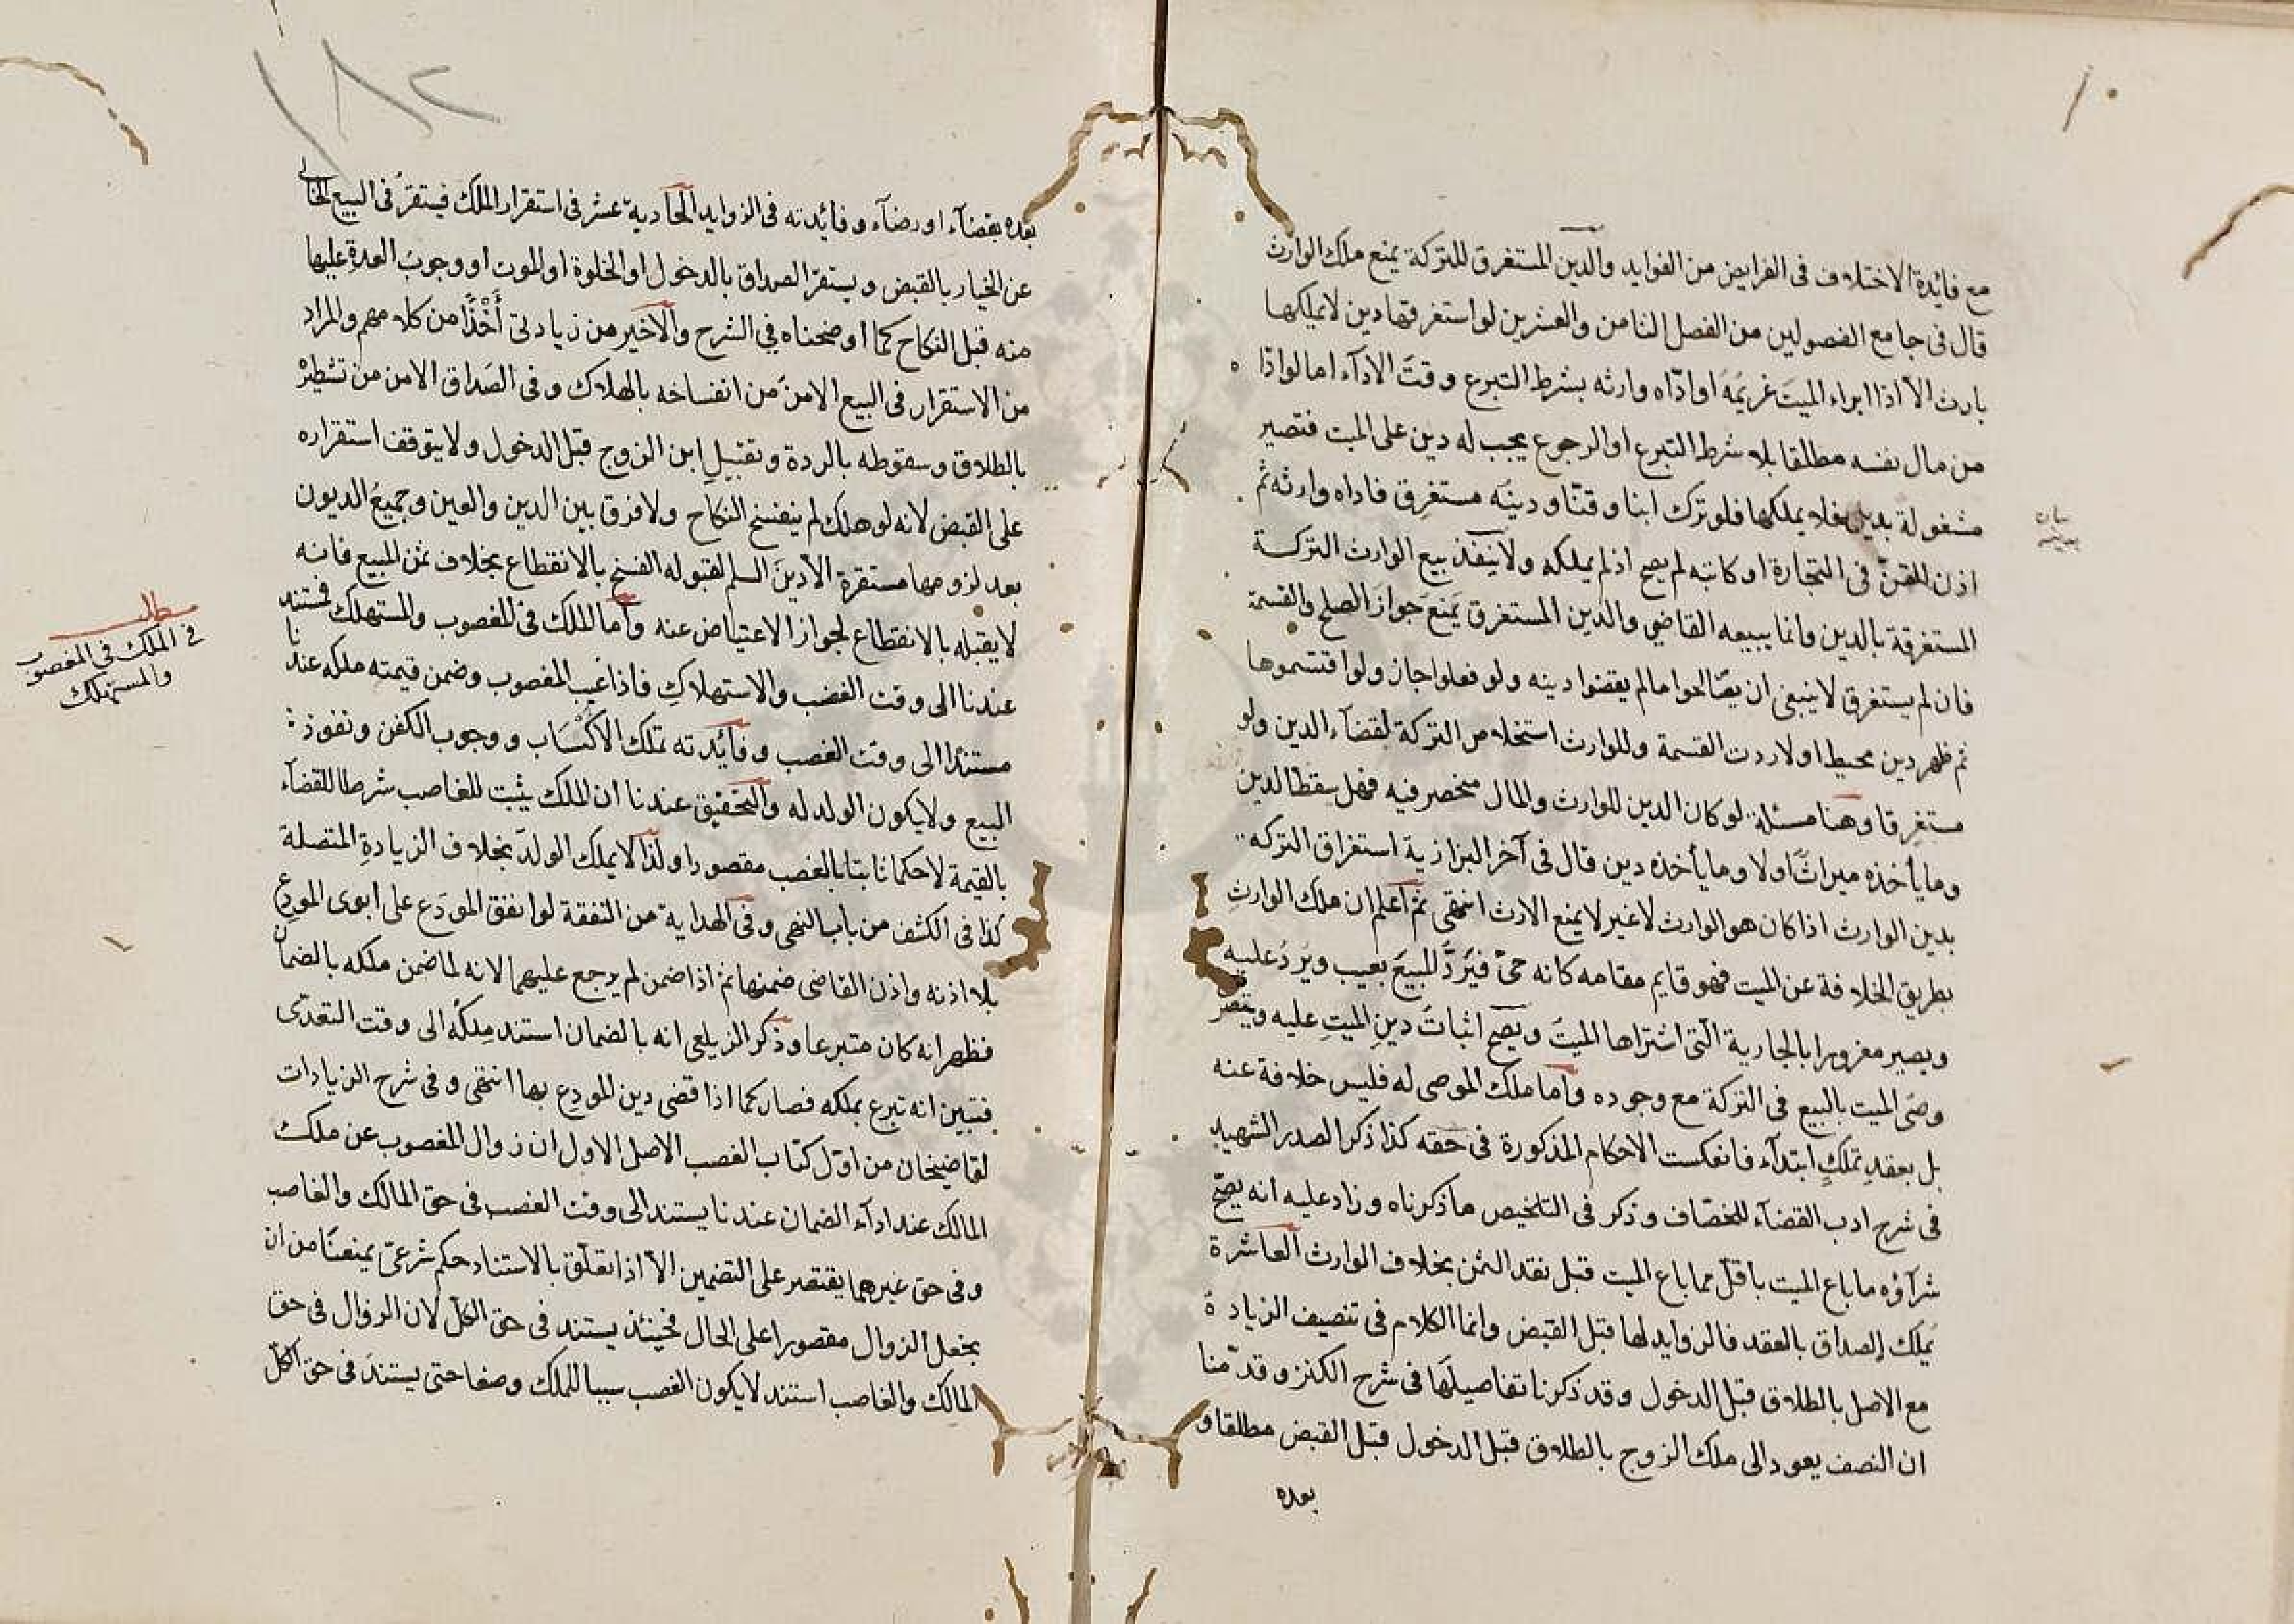 مع فائدة الاختلاف فى الفرايض من الفوايد والدين المستغرق للتركة يمنع ملك الوارث
قال فى جامع الفصولين من الفصل الثامن والعشرين لو استغرقها دين لا يملكها
بارث الا اذا ابراء الميتَ غريمُه او ادّاه وارثه بشرط التبرع وقتَ الادآء اما لو ادّا ه
من مال نفسه مطلقا بلا شرط التبرع او الرجوع يجب له دين على الميت فتصير
مشغولة بدين فلا يملكها فلو ترك ابنا وقنّا ودينُه مستغرِق فاداه وارثه ثم
اذن للقنّ فى التجارة او كاتبه لم يصح اذ لم يملكه ولا ينفذ بيع الوارث التركة
المستغرقة بالدين وانما يبيعه القاضي والدين المستغرق يَمنَع جوازَ الصلح والقسمة
فان لم يستغرق لا ينبغى ان يصّالحوا ما لم يقضوا دينه ولو فعلوا جاز ولو اقتسموها
ثم ظهر دين محيط او لا ردت القسمة وللوارث استخلاص التركة لقضآء الدين ولو
مستغرِقا وهنا مسئلة لو كان الدين للوارث والمال منحصر فيه فهل سقط الدين
وما يأخذه ميراثًا اولا وما يأخذه دين قال فى آخر البزازية استغراق التركة
بدين الوارث اذا كان هو الوارث لا غير لا يمنع الارث انتهى ثم اعلم ان ملك الوارث
بطريق الخلافة عن الميت فهو قايم مقامه كانه حىّ فيَرُدُّ المبيعَ بعيب ويُرَدُّ عليه
ويصير مغرورا بالجارية الّتى اشتراها الميتُ ويصح اثباتُ دينِ الميتِ عليه ويتصر
وصّى الميت بالبيع فى التركة مع وجوده واما ملك الموصى له فليس خلافة عنه
بل بعقدِ تملكٍ ابتدآء فانعكست الاحكام المذكورة فى حقه كذا ذكر الصدر الشهيد
فى شرح ادب القضآء للخصّاف وذكر فى التلخيص ما ذكرناه وزاد عليه انه يصحّ
شرآؤه ما باع الميت باقلّ مما باع الميت قبل نقد الثمن بخلاف الوارث العاشرة
يُملك الصداق بالعقد فالزوايد لها قبل القبض وانما الكلام فى تنصيف الزياد ة
مع الاصل بالطلاق قبل الدخول وقد ذكرنا تفاصيلَها فى شرح الكنز وقدّمنا
ان النصف يعود الى ملك الزوج بالطلاق قبل الدخول قبل القبض مطلقا و
بعده
بيان
١٨٢
بعده بقضآء او رضآء وفائدته فى الزوايد الحادية عشر فى استقرار الملك فيستقرُ فى البيع الخالى
عن الخيار بالقبض ويستقرّ الصداق بالدخول او الخلوة او الموت او وجوب العدةِ عليها
منه قبل النكاح كما اوضحناه في الشرح والاخير من زيادتى أَخْذًا من كلامهم والمراد
من الاستقرار فى البيع الامن من انفساخه بالهلاك وفى الصَداق الامن من تشطره
بالطلاق وسقوطه بالردة وتقبيلِ ابن الزوج قبل الدخول ولا يتوقف استقراره
على القبض لانه لو هلك لم ينفسخ النكاح ولا فرق بين الدين والعين وجميعُ الديون
بعد لزومها مستقرة الا دينَ السلم لقبوله الفسخ بالانقطاع بخلاف ثمن المبيع فانه
لا يقبله بالانقطاع لجواز الاعتياض عنه واما الملك فى المغصوب والمستهلك فمستند
عندنا الى وقت الغضب والاستهلاكِ فاذا غيب المغصوب وضمن قيمته ملكه عندنا
مستندًا الى وقت الغصب وفائدته تملك الاكْتِسَاب ووجوب الكفن ونفوذ :
البيع ولا يكون الولد له والتحقيق عندنا ان الملك يثبت للغاصب شرطا للقضآء
بالقيمة لا حكما ثابتا بالغصب مقصورا ولذا لا يملك الولدَ بخلاف الزيادةِ المتصلة
كذا فى الكشف من باب النهى وفى الهداية من النفقة لو انفق المودَع على ابوى المودِع
بلا اذنه واذن القاضى ضمنها ثم اذا ضمن لم يرجع عليهما لانه لما ضمن ملكه بالضمان
فظهر انه كان متبرعا وذكر الزيلعى انه بالضمان استند ملكُه الى وقت التعدّى
فتبين انه تبرع بملكه فصار كما اذا قضى دين المودِع بها انتهى وفى شرح الزيادات
لقاضيخان من اوّل كتاب الغصب الاصل الاول ان زوال المغصوب عن ملك
المالك عند ادآء الضمان عندنا يستند الى وقت الغصب فى حق المالك والغاصب
وفى حق غيرهما يقتصر على التضمين الّا اذا تعلّق بالاستناد حكم شرعىّ يمنعنَا من ان
نجعل الزوال مقصورا على الحال فحينئذ يستند فى حق الكلّ لان الزوال فى حق
المالك والغاصب استند لا يكون الغصب سببا للملك وضعا حتى يستندَ فى حق الكلّ
مطلب
فى الملك فى المغصوب
والمستهلك